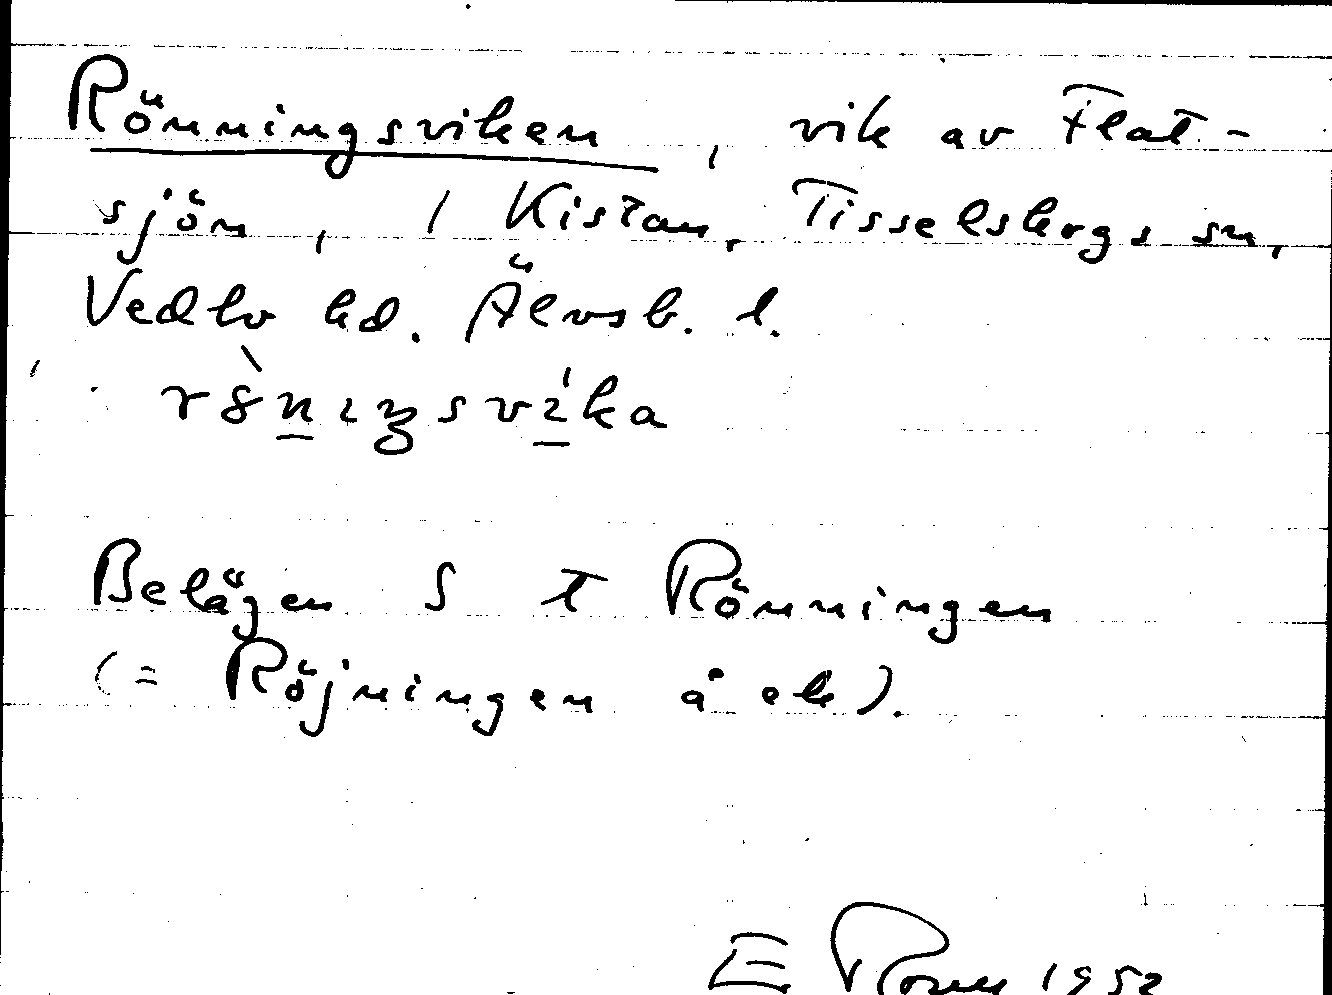 Rönningsviken, vik av Flat-
sjön, 1 Kistan, Tisselskogs sn,
Vedbo hd. Älvsb. l.
Belägen S t Rönningen
(= Röjningen å ek).
E 1952